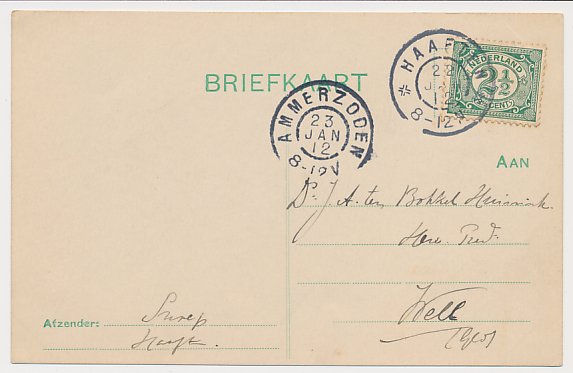 BRIEFKAART
HAAFTEN
23
JAN
12
8-12V
NEDERLAND
2½
CENT
AMMERZODEN
23
JAN
12
8-12V
AAN
Dr. J. A. ten Bokkel Huinink
Herv. Pred.
Well
(Gld)
Afzender:
Haaften.